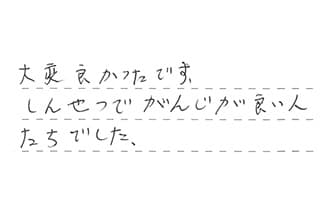 大変良かったです、
しんせつで がんじが良い人
たちでした、